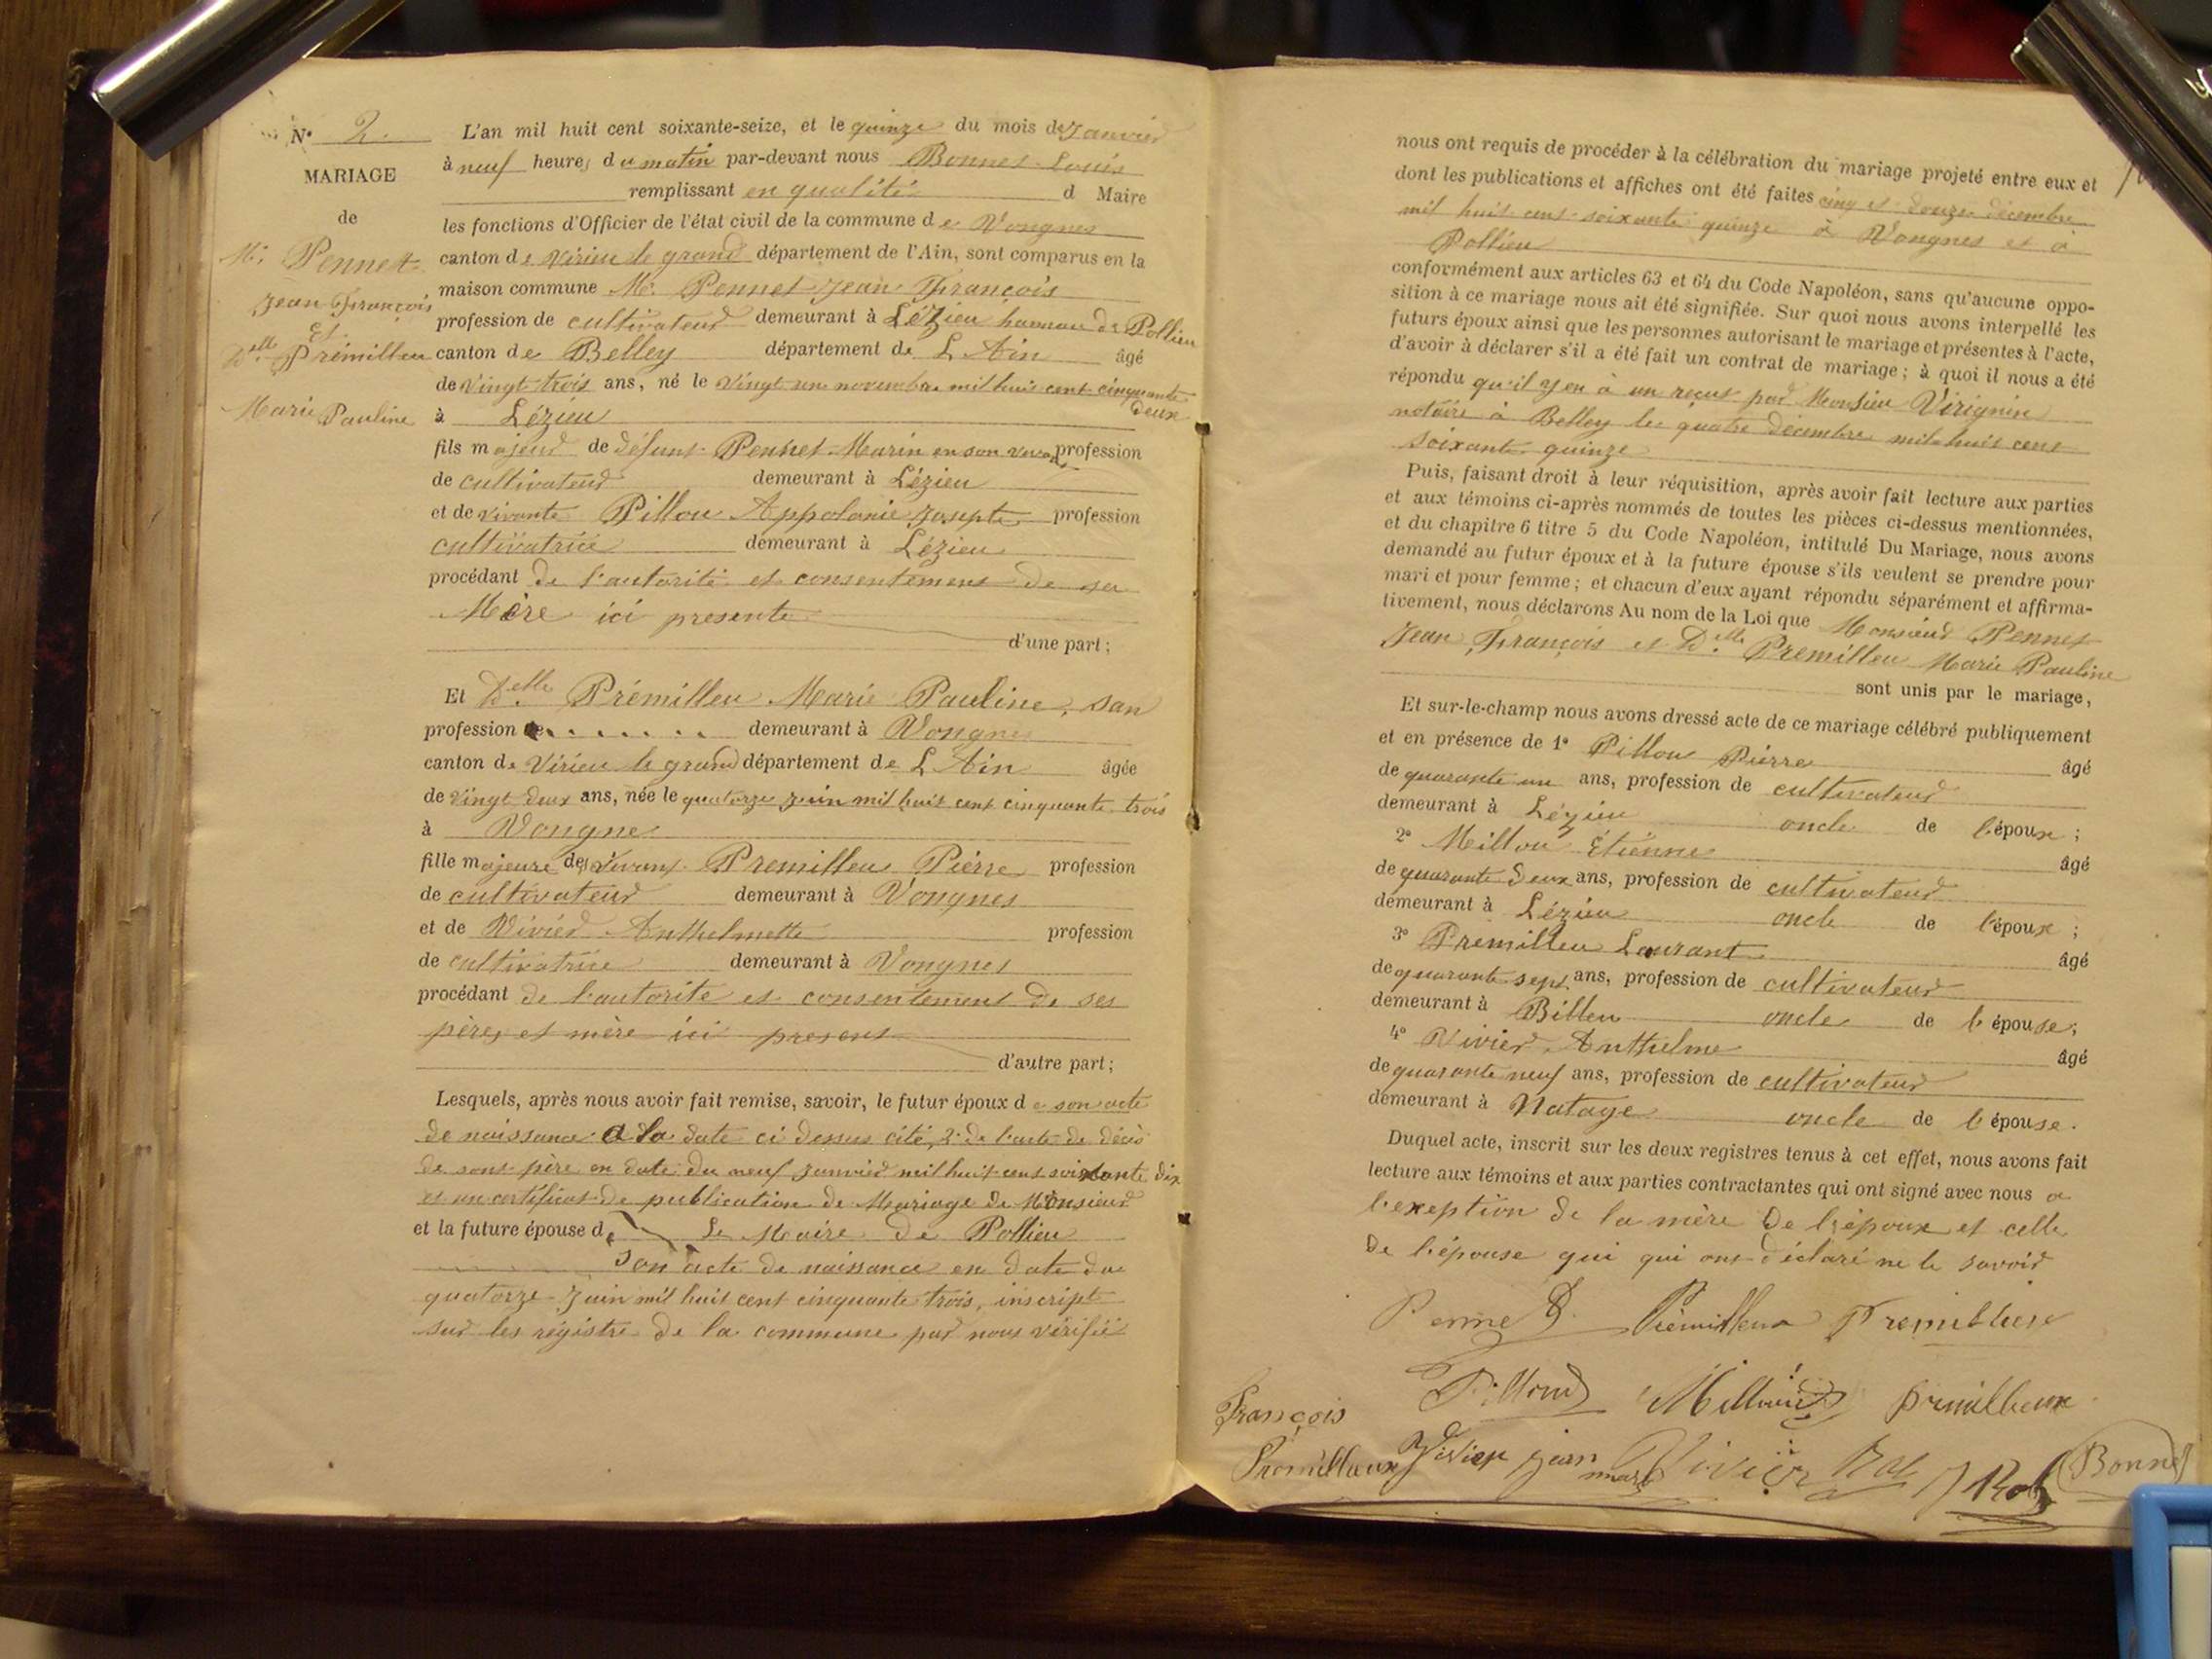 N° 2.
MARIAGE
de
Mr. Pennet
Jean François
Et
Delle Prémilleu
Marie Pauline
L'an mil huit cent soixante-seize, et le quinze du mois de Janvier
à neuf heures du matin par-devant nous Bonnet Louis
remplissant en qualité d Maire
les fonctions d'Officier de l'état civil de la commune de Vongnes
canton de Virieu le grand département de l'Ain, sont comparus en la
maison commune Mr. Pennet Jean François
profession de cultivateur demeurant à Lézieu hameau de Pollieu
canton de Belley département de L'Ain âgé
de vingt trois ans, né le vingt un novembre mil huit cent cinquante
deux
à Lézieu
fils majeur de défunt Pennet Marin en son vivant profession
de cultivateur demeurant à Lézieu
et de vivante Pillou Appolonie Josepte profession
cultivatrice demeurant à Lézieu
procédant de l'autorité et consentement de sa
Mère ici presente
d'une part;
Et Delle Prémilleu Marie Pauline, san
profession de . . . . . . . demeurant à Vongnes
canton de Virieu le grand département de L'Ain âgée
de vingt deux ans, née le quatorze juin mil huit cent cinquante trois
à Vongne
fille majeure de vivant Premilleu Pierre profession
de cultivateur demeurant à Vongnes
et de Vivier Anthelmette profession
de cultivatrice demeurant à Vongnes
procédant de l'autorité et consentement de ses
père et mère ici present
d'autre part;
Lesquels, après nous avoir fait remise, savoir, le futur époux de son acte
de naissance a la date ci dessus cité, 2° de l'acte de décès
de sont père en date du neuf janvier mil huit cent soixante dix
et un certificat de publication de Mariage de Monsieur
et la future épouse de Le Maire de Pollieu
Son acte de naissance en date du
quatorze Juin mil huit cent cinquante trois, inscript
sur les régistre de la commune par nous vérifié
nous ont requis de procéder à la célébration du mariage projeté entre eux et
dont les publications et affiches ont été faites cinq et douze décembre
mil huit cent soixante quinze à Vongnes et à
Pollieu
conformément aux articles 63 et 64 du Code Napoléon, sans qu'aucune oppo-
sition à ce mariage nous ait été signifiée. Sur quoi nous avons interpellé les
futurs époux ainsi que les personnes autorisant le mariage et présentes à l'acte,
d'avoir à déclarer s'il a été fait un contrat de mariage; à quoi il nous a été
répondu qu'il y en à un recut par Monsieu Virignin
notaire à Belley le quatre décembre mil huit cent
soixante quinze
Puis, faisant droit à leur réquisition, après avoir fait lecture aux parties
et aux témoins ci-après nommés de toutes les pièces ci-dessus mentionnées,
et du chapitre 6 titre 5 du Code Napoléon, intitulé Du Mariage, nous avons
demandé au futur époux et à la future épouse s'ils veulent se prendre pour
mari et pour femme; et chacun d'eux ayant répondu séparément et affirma-
tivement, nous déclarons Au nom de la Loi que Monsieur Pennet
Jean François et Delle Premilleu Marie Pauline
sont unis par le mariage,
Et sur-le-champ nous avons dressé acte de ce mariage célébré publiquement
et en présence de 1° Pillou Pierre âgé
de quarante un ans, profession de cultivateur
demeurant à Lézieu oncle de l'époux;
2° Meillou Étiénne âgé
de quarante deux ans, profession de cultivateur
demeurant à Lézieu oncle de l'époux;
3° Premilleu Laurant âgé
de quarante sept ans, profession de cultivateur
demeurant à Billeu oncle de l'épouse;
4° Vivier Anthelme âgé
de quarante neuf ans, profession de cultivateur
demeurant à Natage oncle de l'épouse.
Duquel acte, inscrit sur les deux registres tenus à cet effet, nous avons fait
lecture aux témoins et aux parties contractantes qui ont signé avec nous a
l'exeption de la mère de l'époux et celle
de l'épouse qui qui ont déclaré ne le savoir
Premilleux
Pillond Milliou premilleux
François
Premilleux Vivier jean Vivier Bonnet